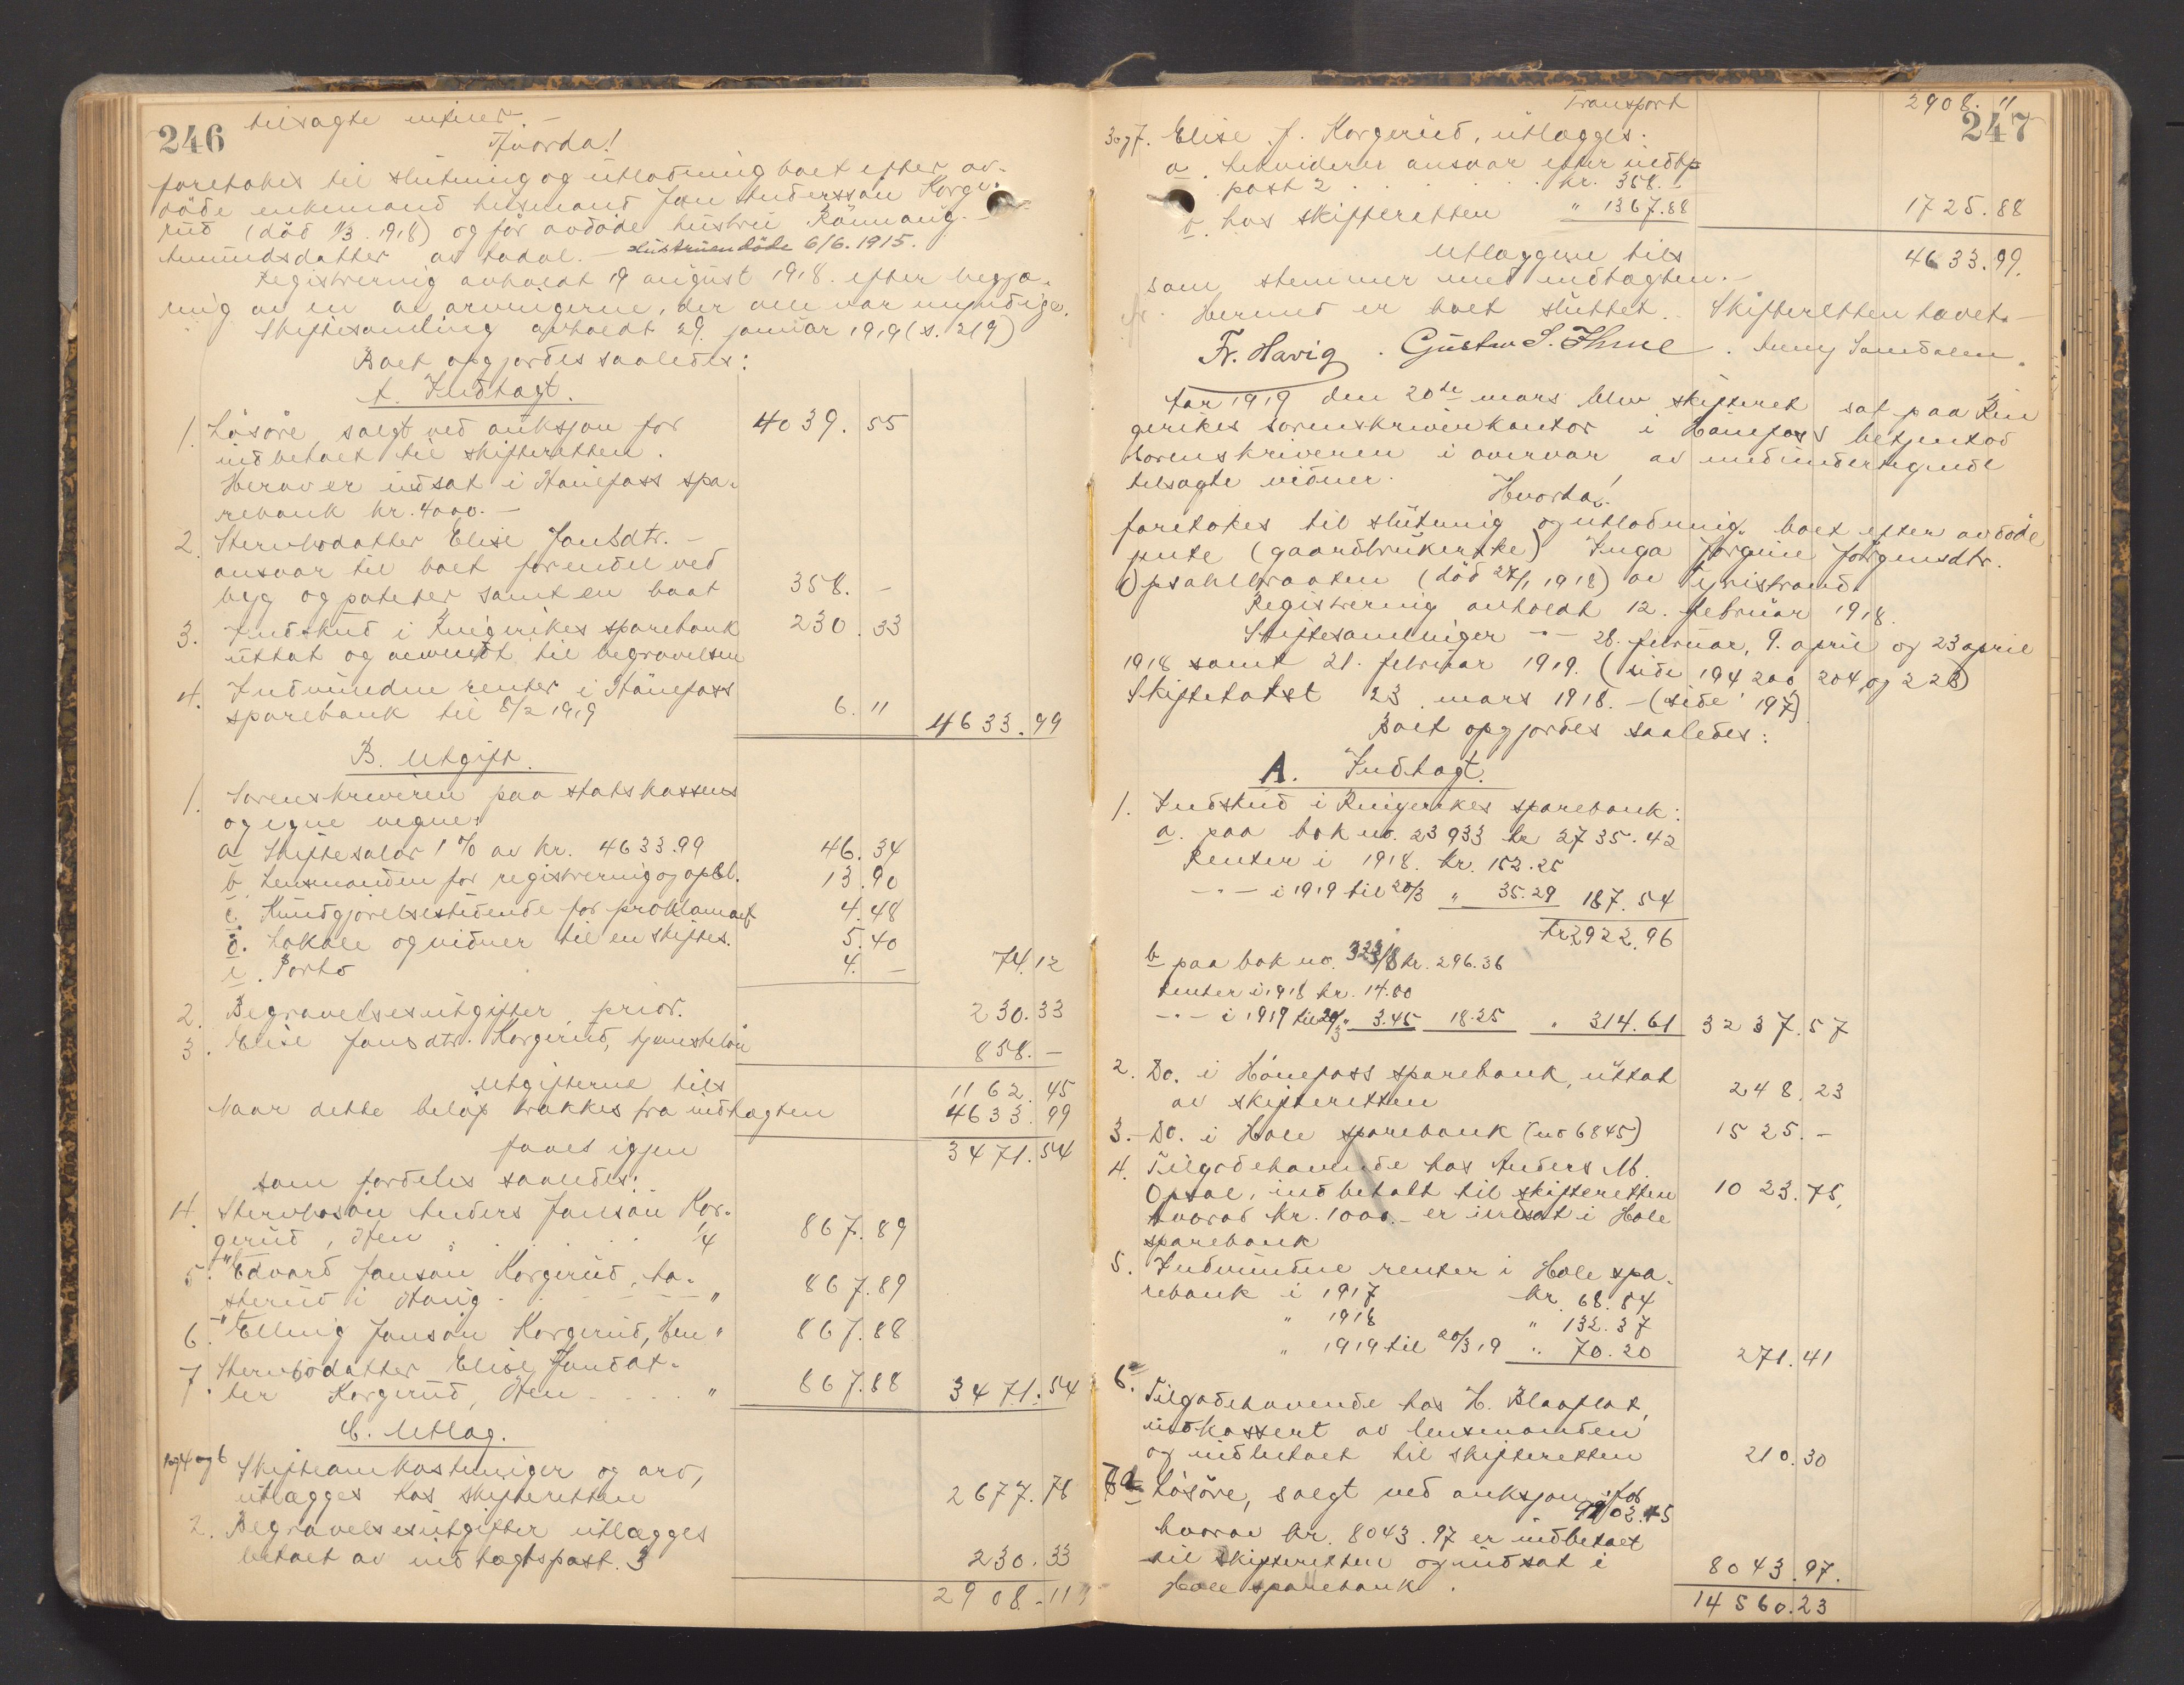 246
tilsagte vidner. -
Hvorda!
foretokes til slutning og utlodning boet efter av-
døde enkemand husmand Jon Anderssøn Korge-
rud (død 1/3 1918) og før avdøde hustru Rønnaug
Amundsdatter av Aadal. - Hustruen døde 6/6. 1915.
Registrering avholdt 19 august 1918 efter begjæ-
ring av en av arvingerne, der alle var myndige.
Skiftesamling avholdt 29. januar 1919 (s. 219)
Boet opgjordes saaledes:
A. Indtægt.
1. Løsøre, solgt ved auksjon for 4039.55
indbetalt til skifteretten.
Herav er indsat i Hønefoss spa-
rebank kr. 4000. -
2. Stervbodatter Elise Jonsdtr. -
ansvar til boet forendel ved
byg og poteter samt en baat 358. -
3. Indskud i Ringerikes sparebank 230.33
uttat og anvendt til begravelsen
4. Indvundne renter i Hønefoss
sparebank til 8/2 1919 6.11 4633.99
B. Utgift.
1. Sorenskriveren paa statskassens
og egne vegne:
a Skiftesalær 1 % av kr. 4633.99 46.34
b. Lensmanden for registrering og opbl. 13.90
c. Kundgjørelsestidende for proklamaet 4.48
d. Lokale og vidner til en skiftes. 5.40
e. Porto 4. - 74.12
2. Begravelsesutgifter prior. 230.33
3. Elise Jonsdtr. Korgerud, tjenesteløn 858. -
Utgifterne tils 1162.45
Naar dette beløp trækkes fra indtægten 4633.99
faaes igjen 3471.54
som fordeles saaledes:
4. Stervbosøn Anders Jonsøn Kor-
gerud, Hen . . . . 1/4 867.89
5. " Edvard Jonsøn Korgerud, Ha-
sterud i Haug . - - - " 867.89
6. " Elling Jonsøn Korgerud, Hen " 867.88
7. Stervbodatter Elise Jonsdat-
ter Korgerud, Hen - . . . " 867.88 3471.54
C. Utlæg.
1 og 4 og 6 Skifteomkostninger og arv,
utlægges hos skifteretten 2677.78
2. Begravelsesutgifter utlægges
betalt av indtægtspost. 3 230.33
2908.11
247
Transport 2908.11
3 og 7. Elise J. Korgerud, utlægges:
a. Likviderer ansvar efter indtp
post 2 . . . . . kr. 358. -
b. hos skifteretten " 1367.88 1725.88
Utlæggene tils 4633.99.
som stemmer med indtægten. -
Hermed er boet sluttet. Skifteretten hævet. -
Fr. Havig. Gustav S. Ihme. Anny Sandalen.
Aar 1919 den 20de mars blev skifteret sat paa Rin
gerikes sorenskriverkontor i Hønefoss betjent av
sorenskriveren i overvær av medundertegnede
tilsagte vidner.
Hvorda!
foretokes til slutning og utlodning boet efter avdøde
pike (gaardbrukerske) Inga Jørgine Jørgensdtr.
Opsahlbraaten (død 27/1 1918) av Tyristrand.
Registrering avholdt 12. februar 1918.
Skiftesamlinger - " - 28. februar, 9. april og 23 april
1918 samt 21. februar 1919. (side 194 200 204 og 228)
Skiftetakst 23 mars 1918. - (side 197)
Boet opgjordes saaledes:
A. Indtægt.
1. Indskud i Ringerikes sparebank:
a. paa bok no. 23933 kr 2735.42
Renter i 1918. kr. 152.25
- " - i 1919 til 20/3 " 35.29 187.54
kr. 2922.96
b paa bok no. 32318 kr. 296.36
renter i 1918 kr. 14.80
- " - i 1919 til 20/3 " 3.45 18.25 " 314.61 3237.57
2. Do. i Hønefoss sparebank, uttat
av skifteretten 248.23
3. - Do. i Hole sparebank (no 6845) 1525. -
4. Tilgodehavende hos Anders M.
Opsal, indbetalt til skifteretten 1023.75,
hvorav kr. 1000. - er indsat i Hole
sparebank
5. Indvundne renter i Hole spa-
rebank i 1917 kr. 68.84
" 1918 " 132.37
" 1919 til 20/3 19 " 70.20 271.41
6. Tilgodehavende hos H. Blaaflat,
indkassert av lensmanden
og indbetalt til skifteretten 210.30
7 a Løsøre, solgt ved auksjon for
9102.45
hvorav kr. 8043.97 er indbetalt
til skifteretten og indsat i
Hole sparebank. 8043.97.
14560.23